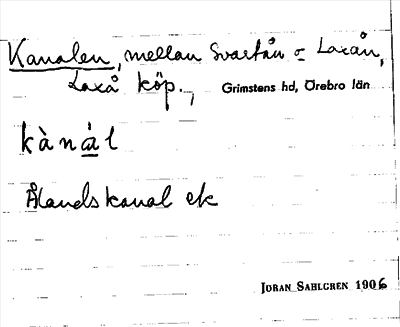 Kanalen, mellan Svartån o Laxån,
Laxå köp., Grimstens hd, Örebro län
kànál
Ålandskanal ek
JÖRAN SAHLGREN 1906